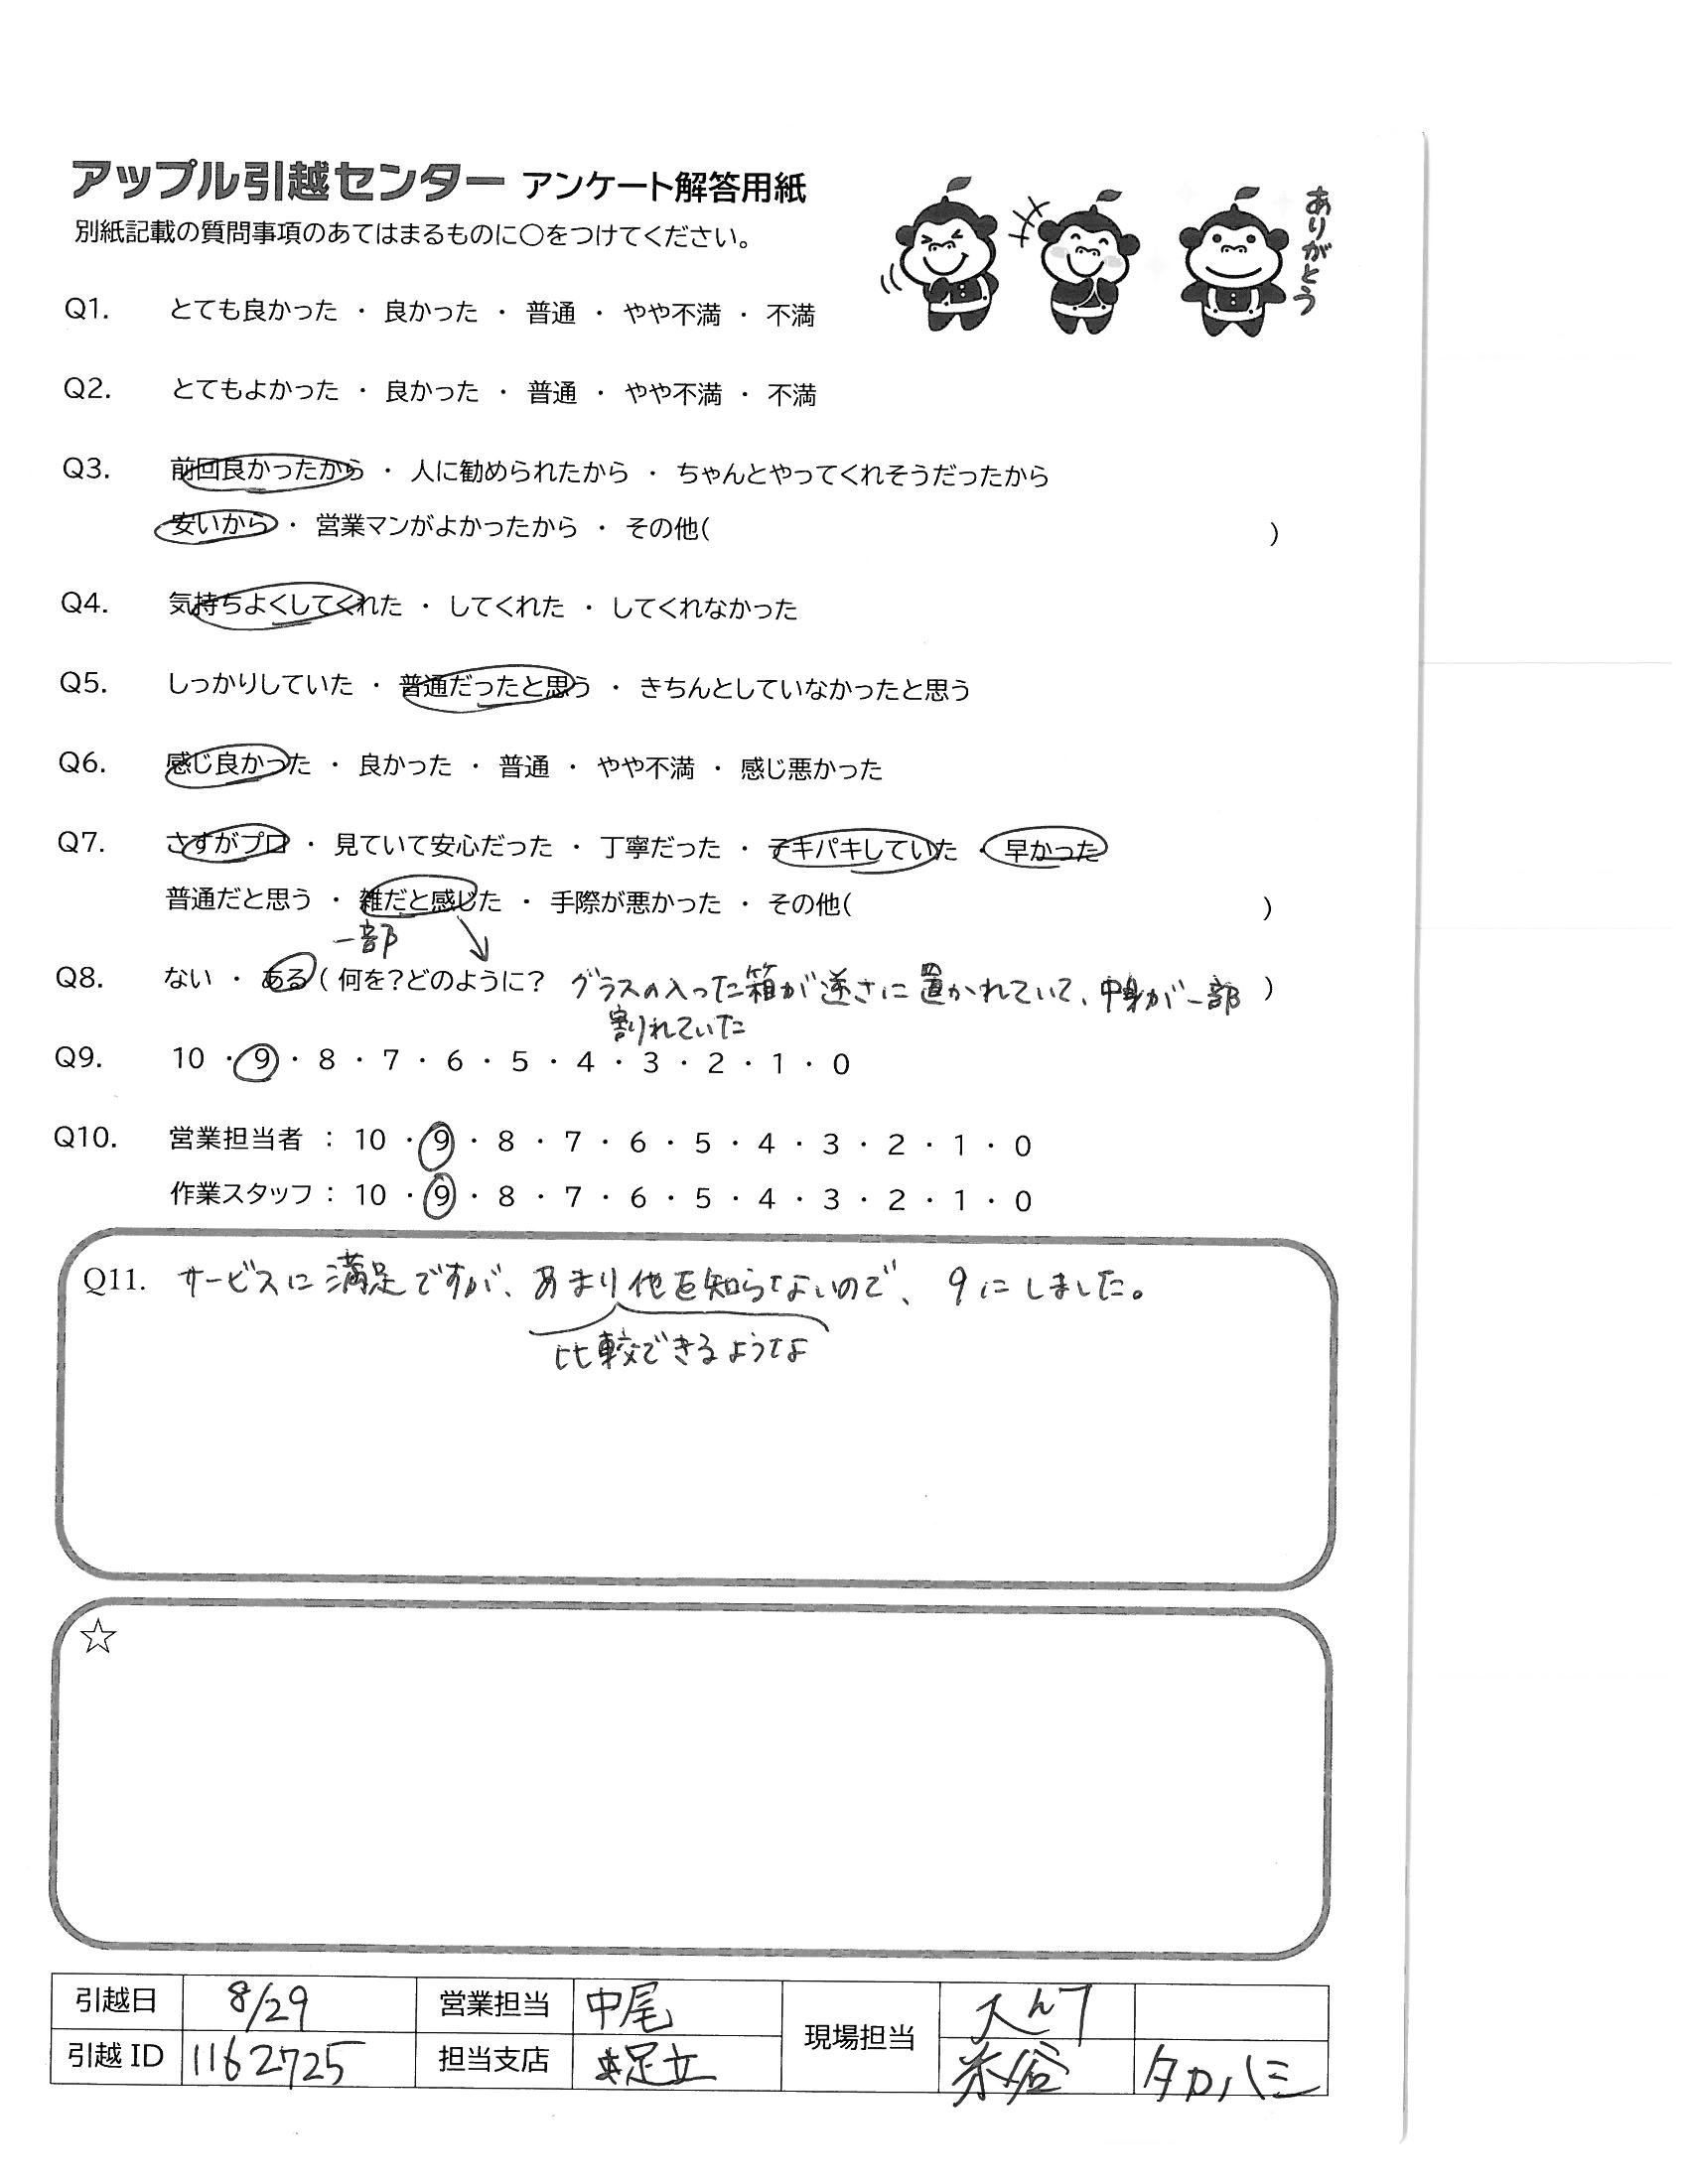 アップル引越センター アンケート解答用紙
ありがとう
別紙記載の質問事項のあてはまるものに○をつけてください。
Q1. とても良かった ・ 良かった ・ 普通 ・ やや不満 ・ 不満
Q2. とてもよかった ・ 良かった ・ 普通 ・ やや不満 ・ 不満
Q3. 前回良かったから ・ 人に勧められたから ・ ちゃんとやってくれそうだったから
安いから ・ 営業マンがよかったから ・ その他( )
Q4. 気持ちよくしてくれた ・ してくれた ・ してくれなかった
Q5. しっかりしていた ・ 普通だったと思う ・ きちんとしていなかったと思う
Q6. 感じ良かった ・ 良かった ・ 普通 ・ やや不満 ・ 感じ悪かった
Q7. さすがプロ ・ 見ていて安心だった ・ 丁寧だった ・ テキパキしていた ・ 早かった
普通だと思う ・ 雑だと感じた ・ 手際が悪かった ・ その他( )
一部
Q8. ない ・ ある ( 何を?どのように? グラスの入った箱が逆さに置かれていて、中身が一部 )
割れていた
Q9. 10 ・ 9 ・ 8 ・ 7 ・ 6 ・ 5 ・ 4 ・ 3 ・ 2 ・ 1 ・ 0
Q10. 営業担当者 : 10 ・ 9 ・ 8 ・ 7 ・ 6 ・ 5 ・ 4 ・ 3 ・ 2 ・ 1 ・ 0
作業スタッフ : 10 ・ 9 ・ 8 ・ 7 ・ 6 ・ 5 ・ 4 ・ 3 ・ 2 ・ 1 ・ 0
Q11. サービスに満足ですが、あまり他を知らないので、9にしました。
比較できるような
☆
引越日 8/29 営業担当 中尾 現場担当
引越 ID 1162725 担当支店 足立 米谷 タカハシ